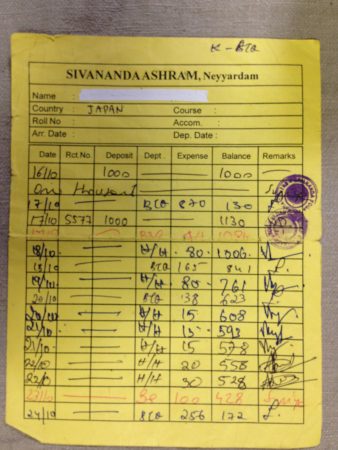 K - BTQ
SIVANANDA ASHRAM, Neyyardam
Name :
Country : JAPAN Course :
Roll No : Accom. :
Arr. Date : Dep. Date :
Date Rct.No. Deposit Dept Expense Balance Remarks
16/10 1000 1000
One thousand
17/10 BTQ 870 130
17/10 5577 1000 1130
18/10 H/H 80 1006
18/10 BTQ 165 841
19/10 H/H 80 761
20/10 BTQ 138 623
20/10 H/H 15 608
21/10 H/H 15 593
21/10 H/H 15 578
22/10 H/H 20 558
22/10 H/H 30 528
23/10 100 428
24/10 BTQ 256 172